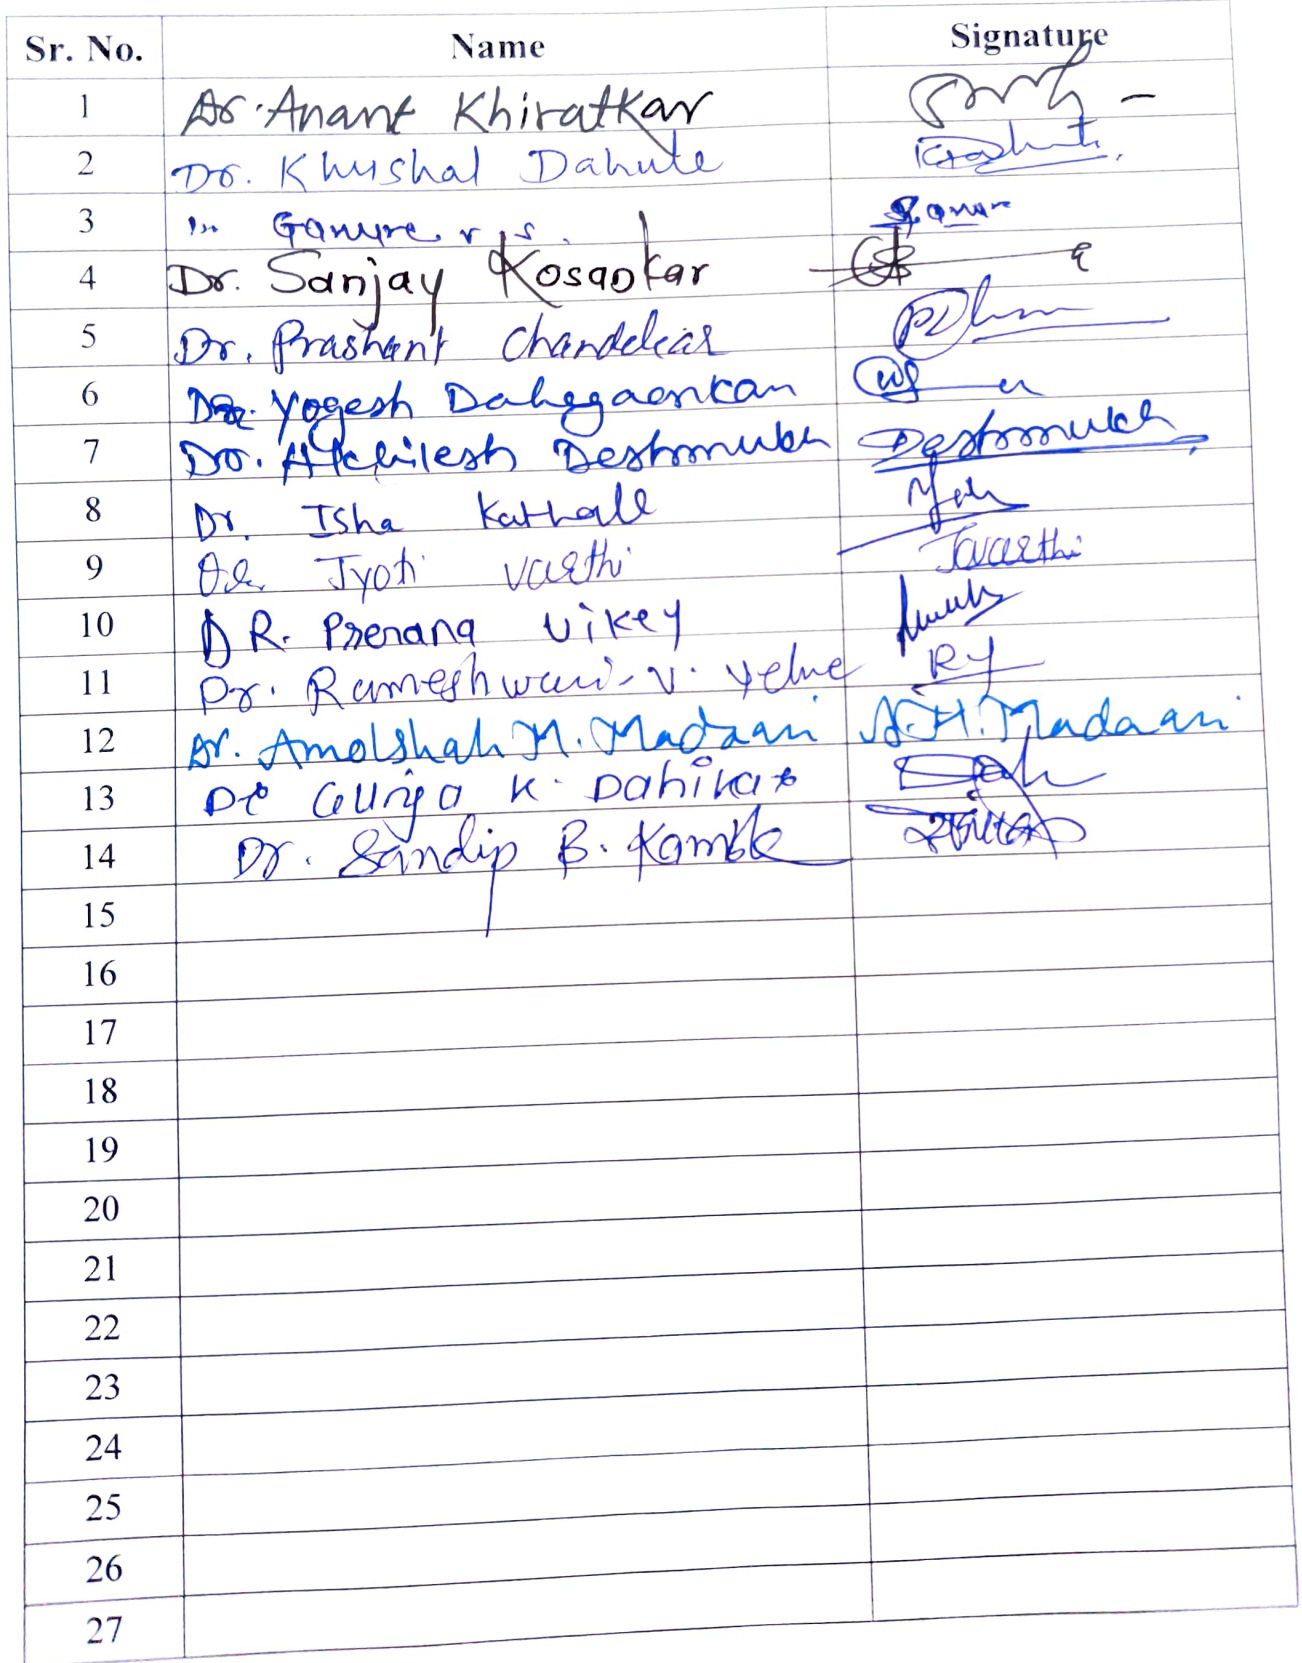 Sr. No. Name Signature
1 Dr. Anant Khiratkar
2 Dr. Khushal Dahule
3 Ganure
4 Dr. Sanjay Kosankar
5 Dr. Prashant
6 Yogesh Dahegaonkar
7 Dr. Akhilesh Deshmukh Deshmukh
8 Dr. Isha Kathale
9 Dr. Jyoti Varthi JVarthi
10 DR. Prerana Vikey
11 Dr. Rameshwari V. Yelne RY
12 Dr. Amolshah M. Madaavi
13 K. Dahikar
14 Dr. Sandip B. Kamble
15
16
17
18
19
20
21
22
23
24
25
26
27